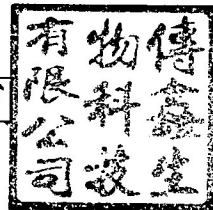 傳鑫生
物科技
有限公司